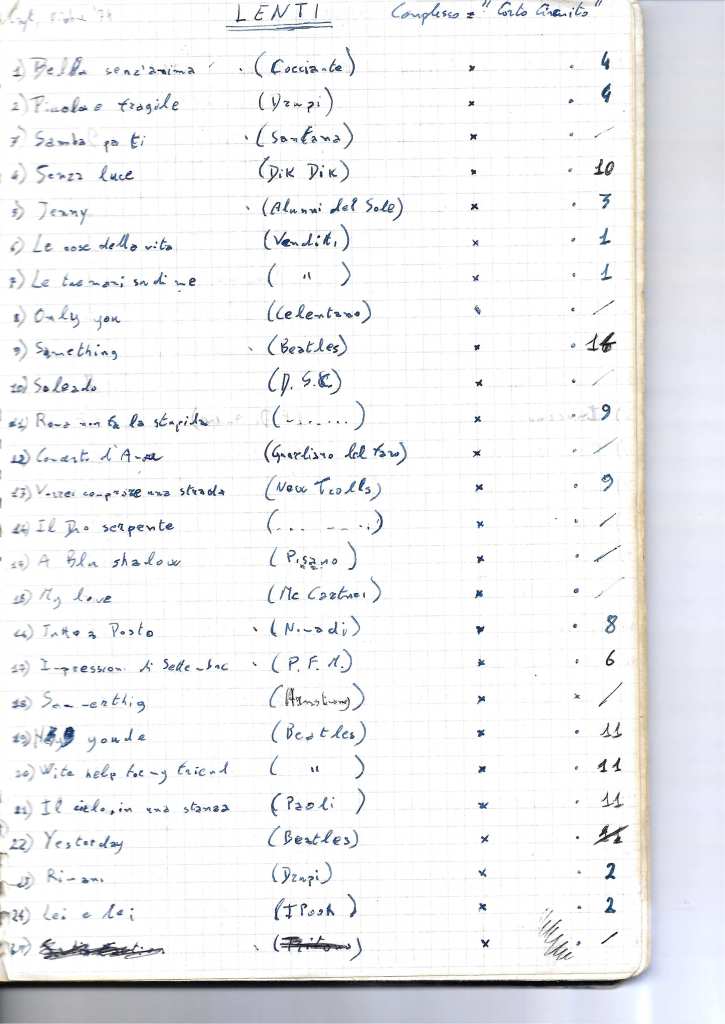 LENTI Complesso = "Corto Circuito"
1) Bella senz'anima . (Cocciante) x . 4
2) Piccola e fragile (Drupi) x . 4
Samba pa ti . (Santana) x . /
4) Senza luce (Dik Dik) x . 10
5) Jenny . (Alunni del Sole) x . 3
6) Le cose della vita (Venditti) x . 1
7) Le tue mani su di me ( " ) x . 1
8) Only you (Celentano) x . /
9) Something . (Beatles) x .
10) Soleado (D. S. C.) x . /
11) Roma non fa la stupida (- ......) x . 9
12) Concerto d'Amore (Guardiano del Faro) x . /
13) Vorrei comprare una strada (New Trolls) x . 9
14) Il Dio serpente (... ....) x . /
A Blu shadow (Pisano) x . /
15) My love (Mc Cartnei) x . /
16) Tutto a Posto . (Nomadi) x . 8
17) Impressioni di Settembre . (P. F. M.) x . 6
18) Somerthig (Armstrong) x x /
19) youde (Beatles) x . 11
20) With help for my friend ( " ) x . 11
21) Il cielo in una stanza (Paoli) x . 11
22) Yesterday (Beatles) x .
23) Rimani (Drupi) x . 2
24) Lei e lei (I Pooh) x . 2
. x . /